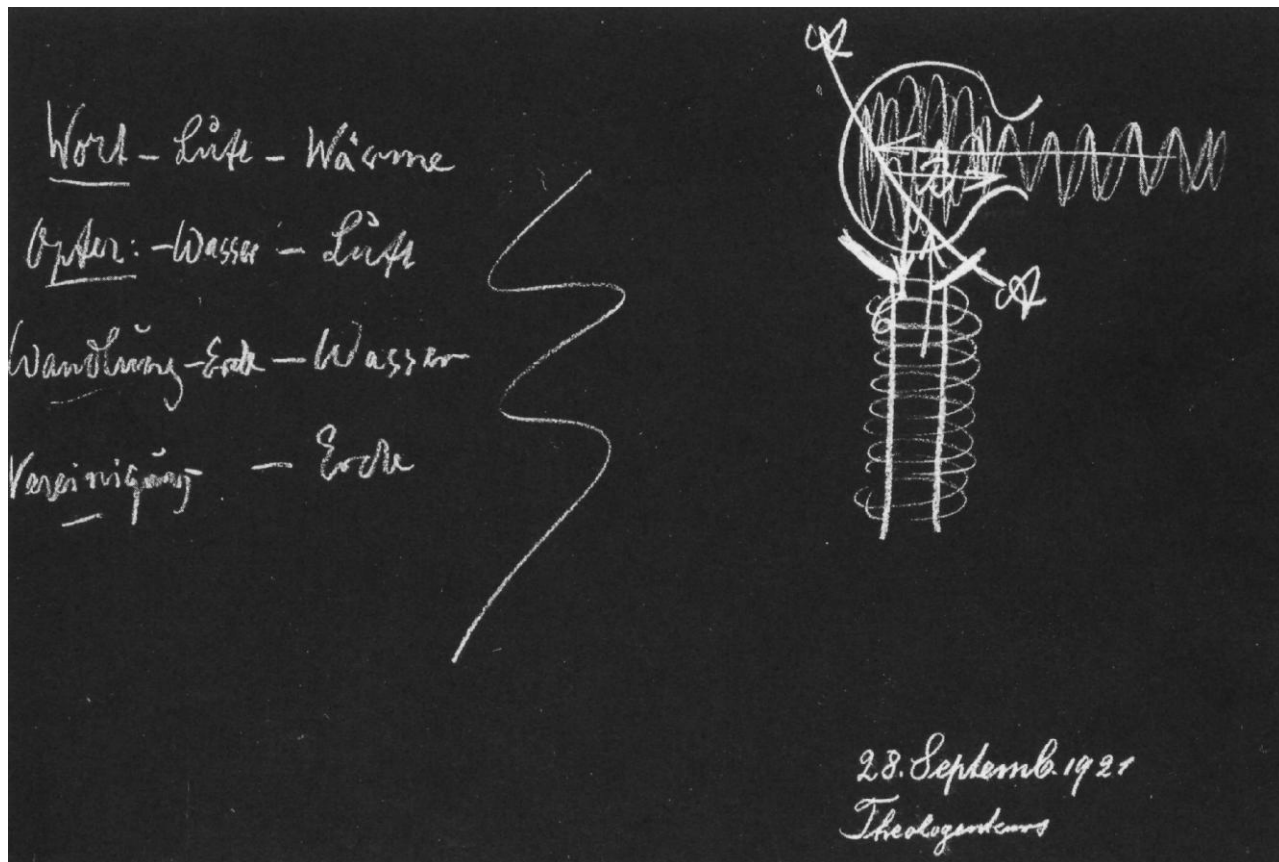 Wort - Luft - Wärme
Opfer: - Wasser - Luft
Wandlung - Erde - Wasser
Vereinigung - Erde
28. Septemb. 1921
Theologenkurs